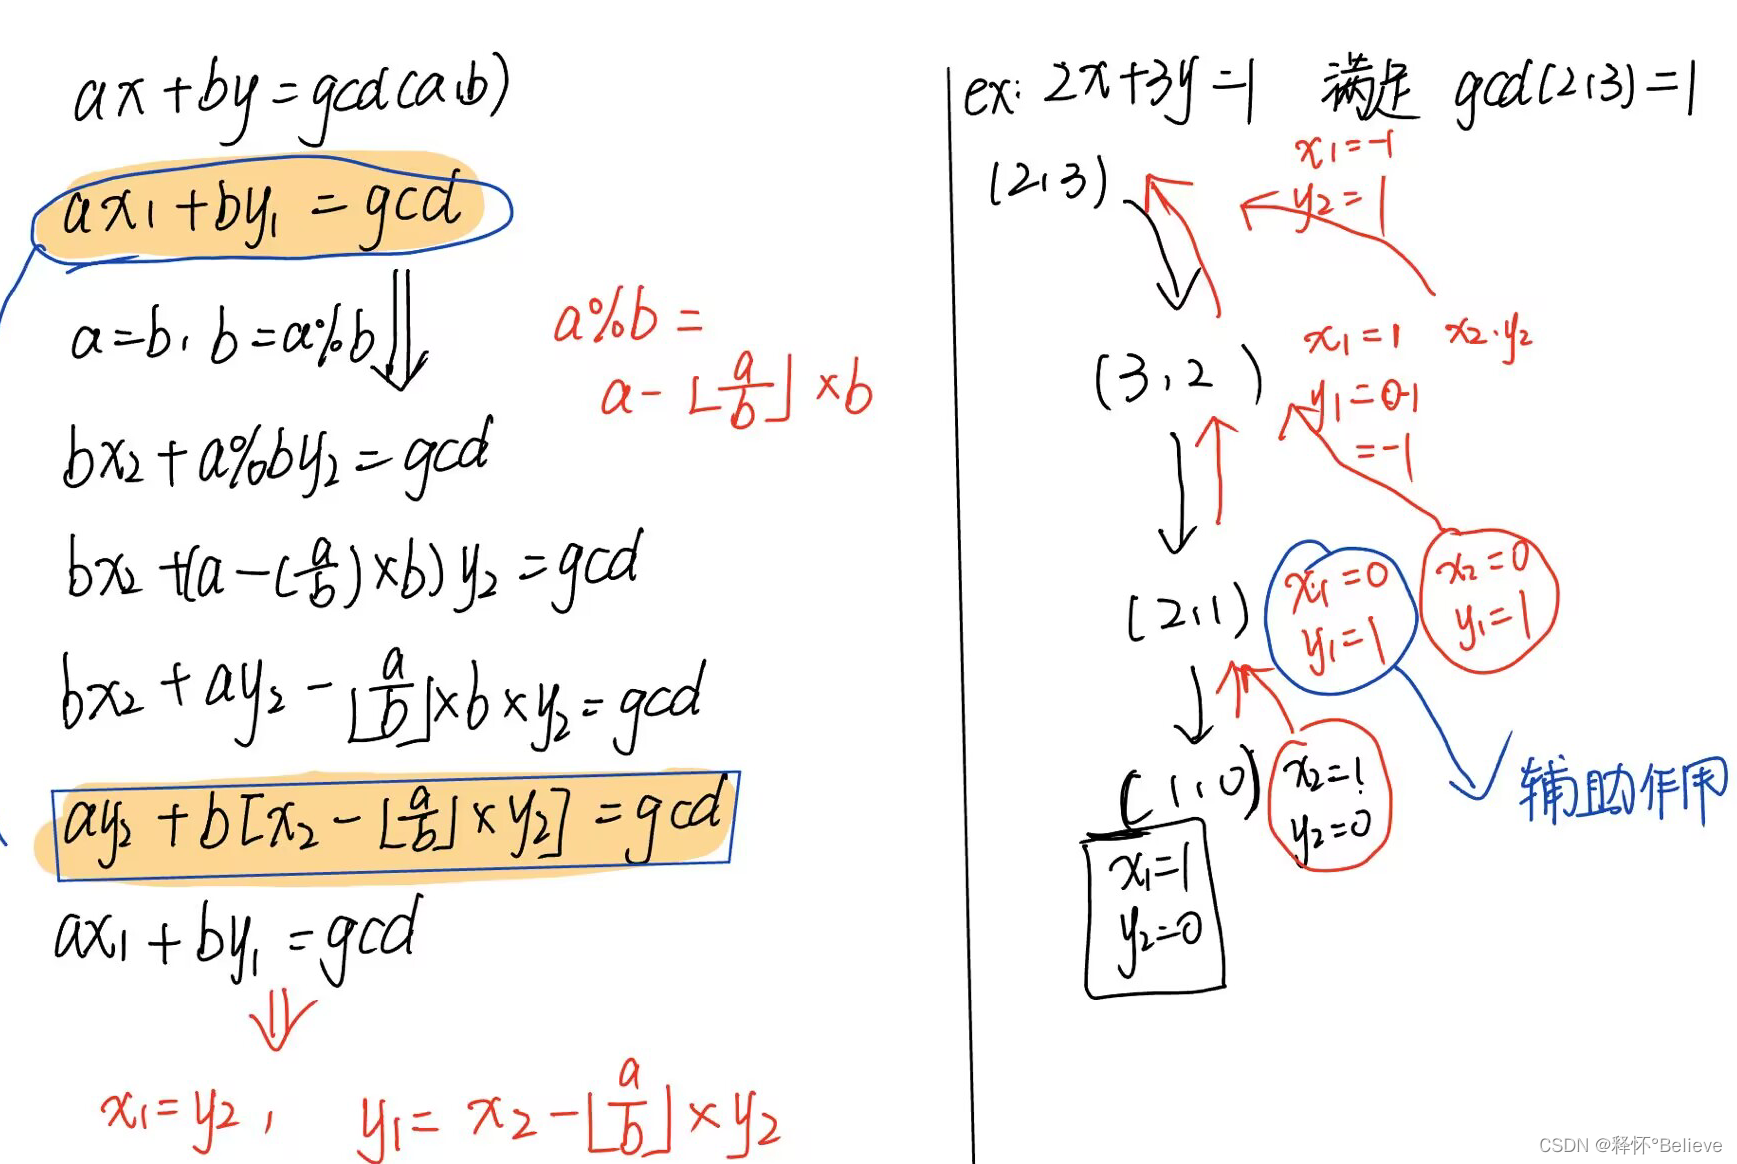 ax+by=gcd(a,b)
ax₁+by₁=gcd
a=b, b=a%b
a%b=
a-⌊a/b⌋×b
bx₂+a%by₂=gcd
bx₂+(a-(a/b)×b)y₂=gcd
bx₂+ay₂-⌊a/b⌋×b×y₂=gcd
ay₂+b[x₂-⌊a/b⌋×y₂]=gcd
ax₁+by₁=gcd
x₁=y₂, y₁=x₂-⌊a/b⌋×y₂
ex: 2x+3y=1 满足 gcd(2,3)=1
(2,3)
x₁=-1
y₂=1
(3,2)
x₁=1 x₂,y₂
y₁=0-1
=-1
(2,1)
x₁=0
y₁=1
x₂=0
y₁=1
辅助作用
(1,0)
x₂=1
y₂=0
x₁=1
y₂=0
CSDN @释怀°Believe